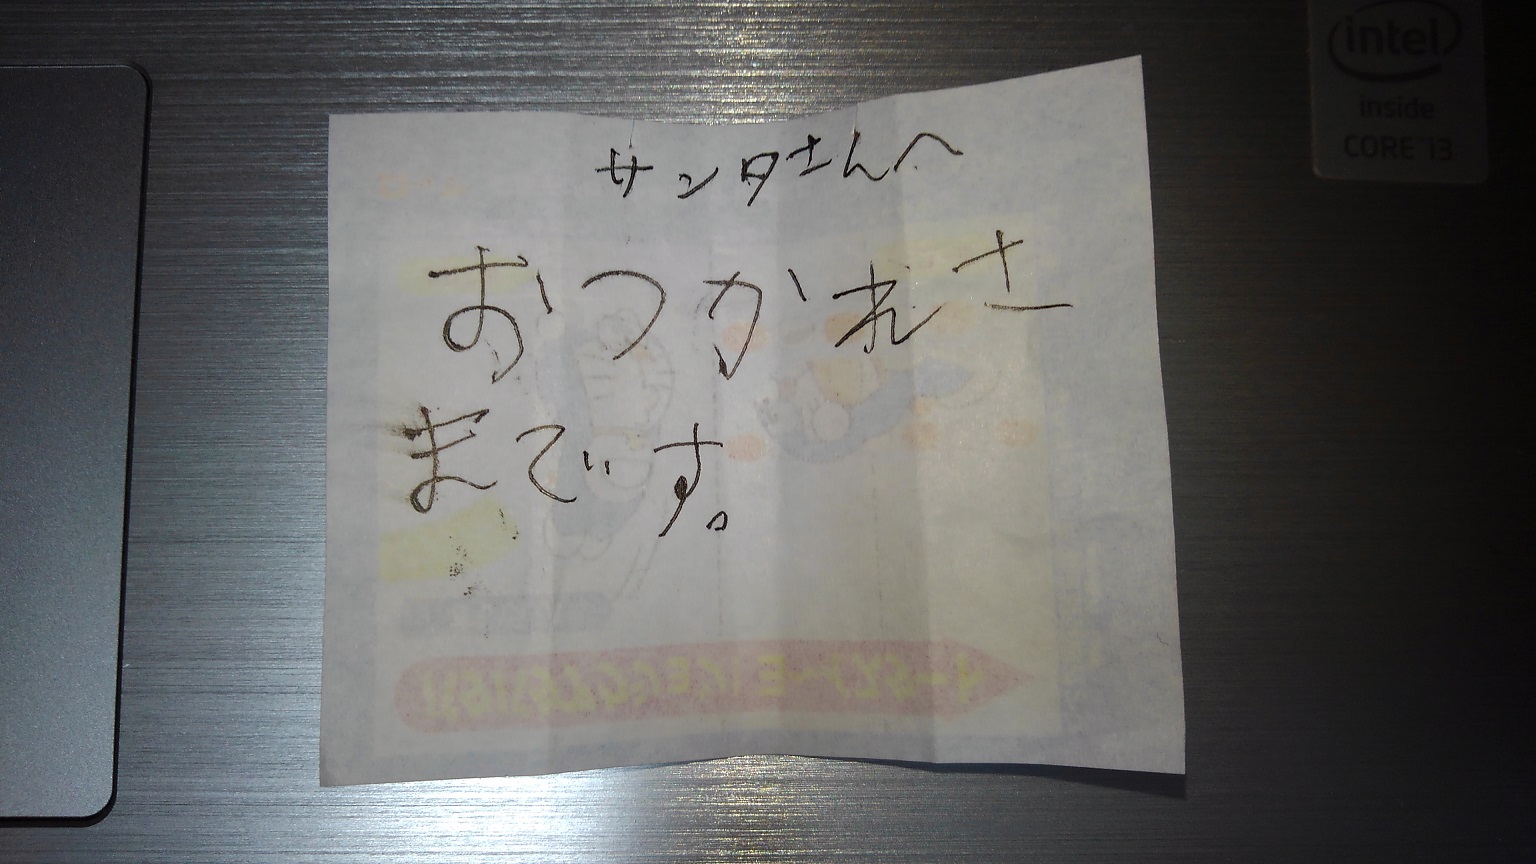 サンタさんへ
おつかれさ
まです。
intel
inside
CORE i3